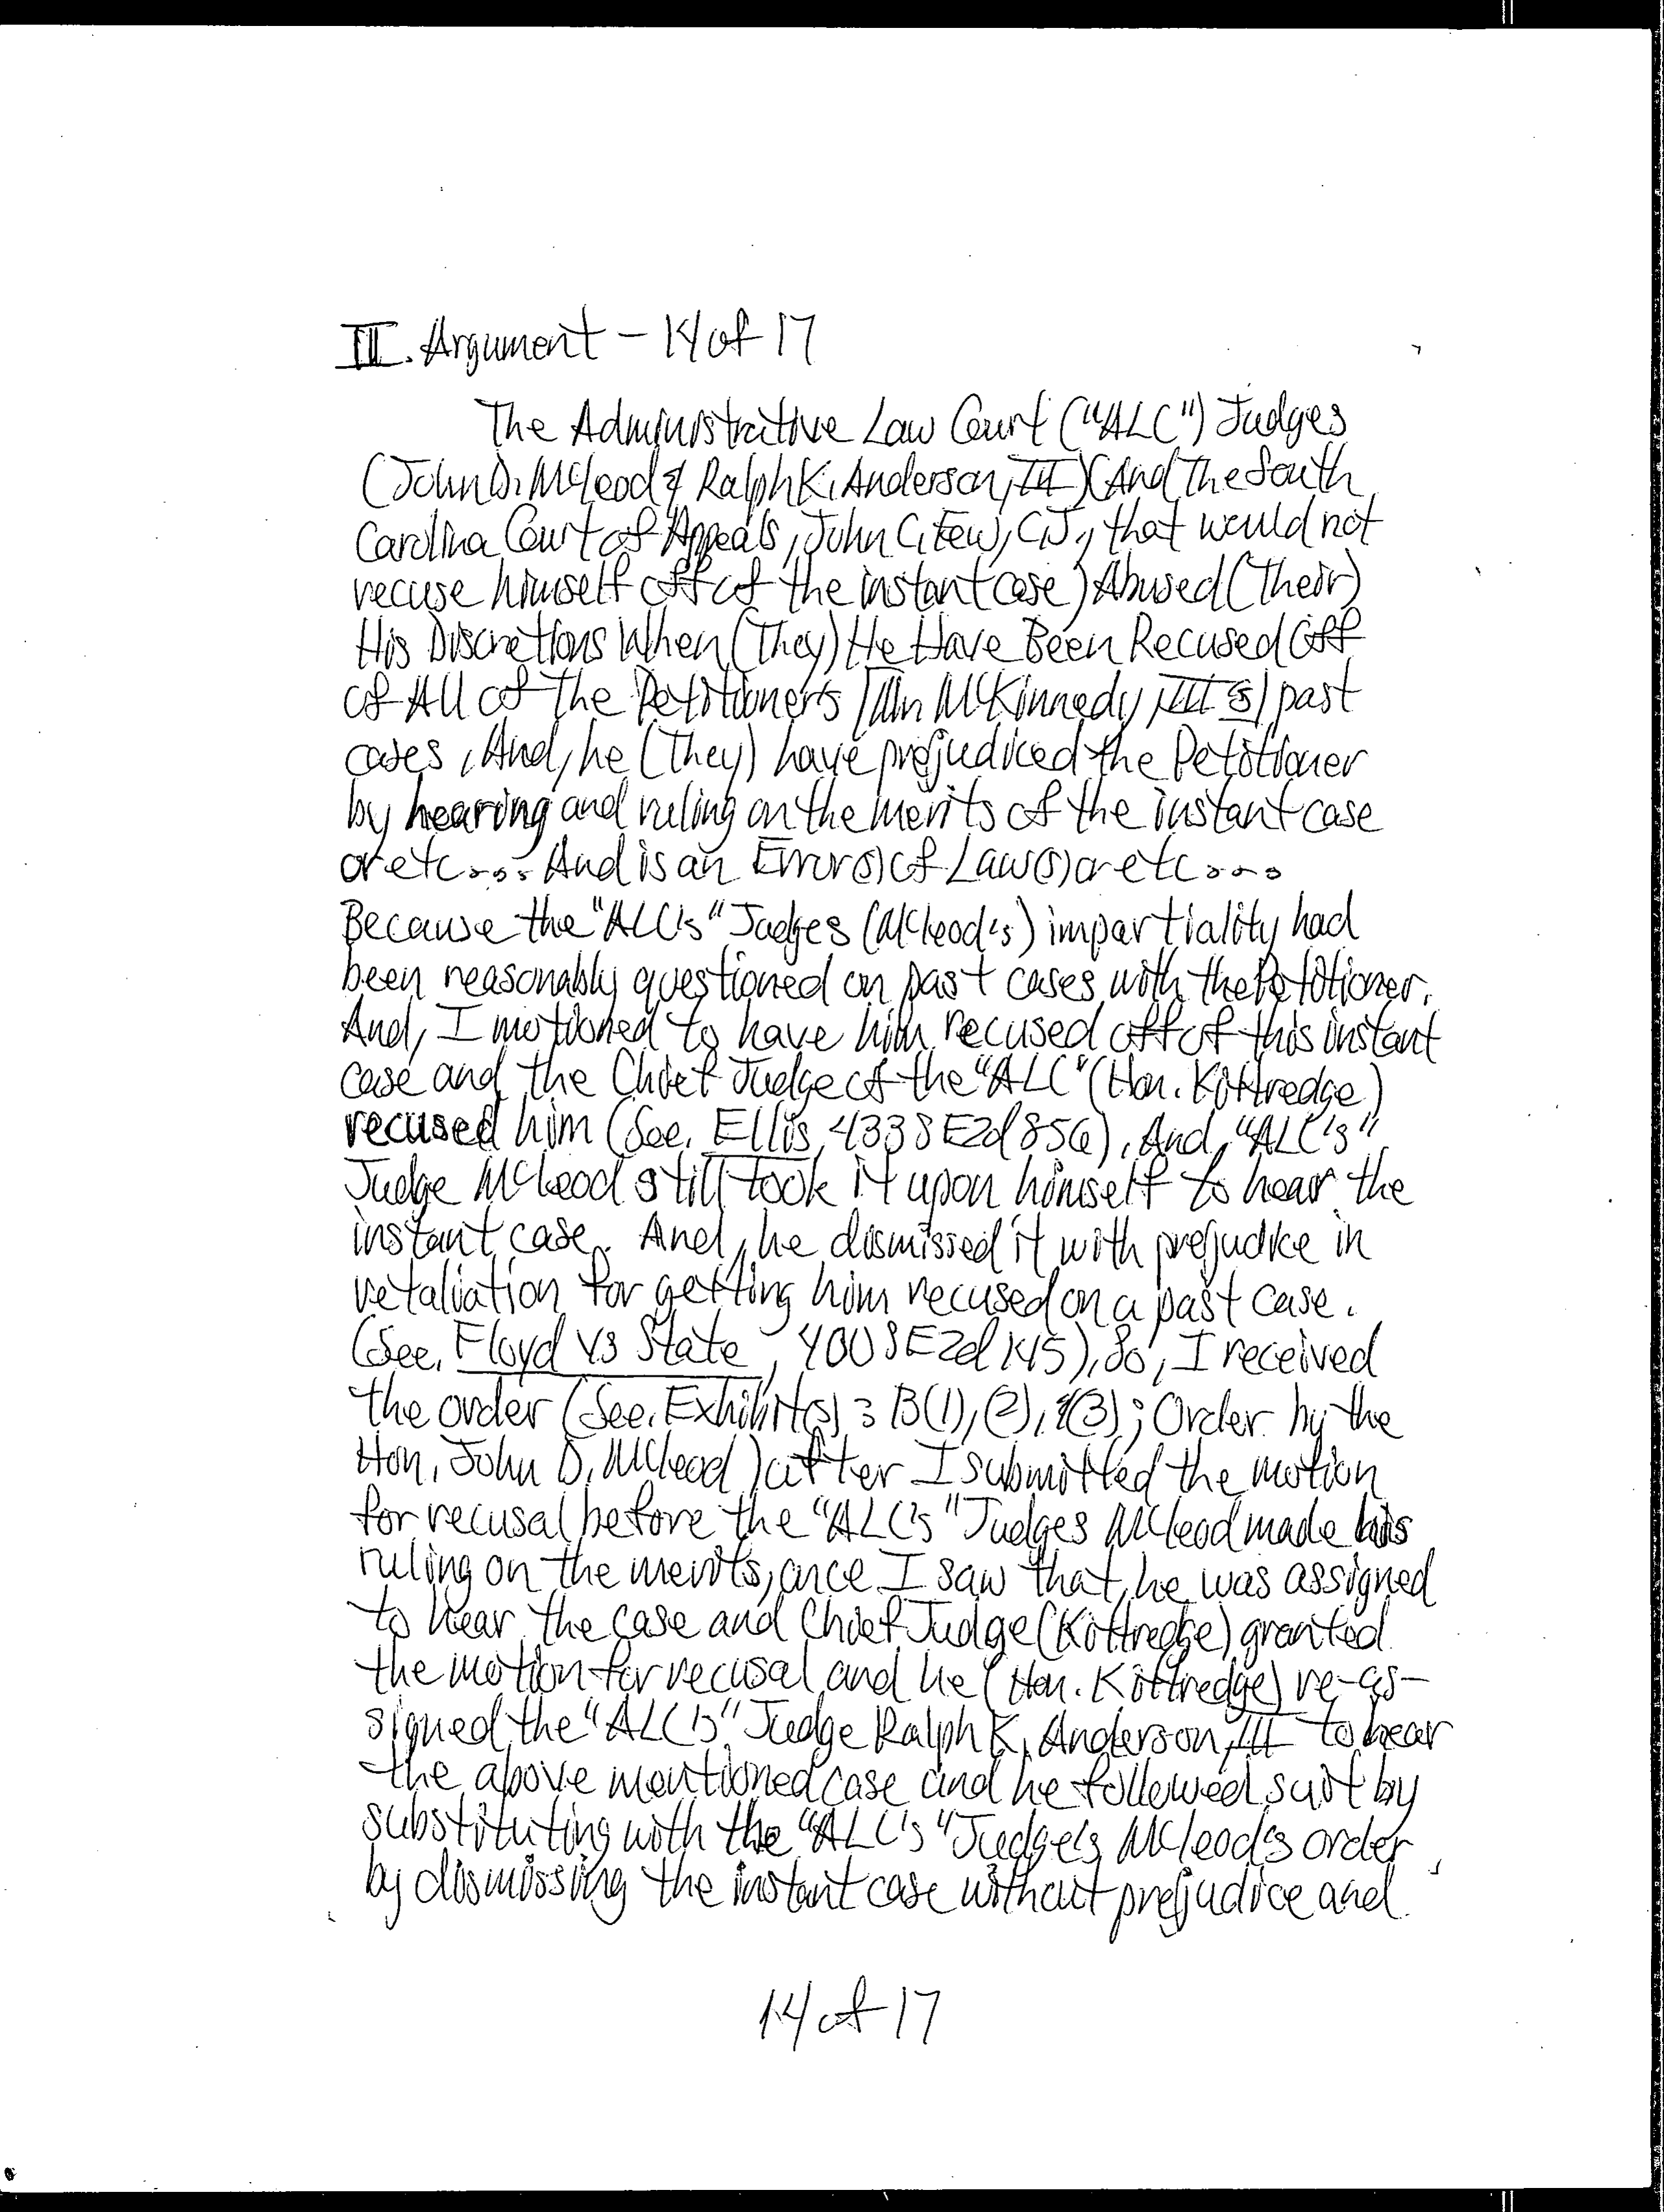 III. Argument - 14 of 17
The Administrative Law Court ("ALC") Judges
(John D. McLeod & Ralph K. Anderson, III) (And The South
Carolina Court of Appeals, John C. Few, C.J., that would not
recuse himself off of the instant case) Abused (Their)
His Discretions When (They) He Have Been Recused Off
of All of The Petitioner's / McKinnedy, III's / past
cases, And, he (They) have prejudiced the Petitioner
by hearing and ruling on the merits of the instant case
or etc... And is an Error(s) of Law(s) or etc...
Because the "ALC's" Judges (McLeod's) impartiality had
been reasonably questioned on past cases with the Petitioner.
And, I motioned to have him recused off of this instant
case and the Chief Judge of the "ALC" (Hon. Kittredge)
recused him (See, Ellis, 433 SE2d 856), And, "ALC's"
Judge McLeod still took it upon himself to hear the
instant case. And, he dismissed it with prejudice in
retaliation for getting him recused on a past case.
(See, Floyd vs State, 400 SE2d 145), So, I received
the order (See, Exhibit(s): B(1), (2), &(3); Order by the
Hon. John D. McLeod) after I submitted the motion
for recusal before the "ALC's" Judges McLeod made his
ruling on the merits, once I saw that, he was assigned
to hear the case and Chief Judge (Kittredge) granted
the motion for recusal and he (Hon. Kittredge) re-as-
signed the "ALC's" Judge Ralph K. Anderson, III to hear
the above mentioned case and he followed suit by
substituting with the "ALC's" Judge's McLeod's order
by dismissing the instant case without prejudice and
14 of 17